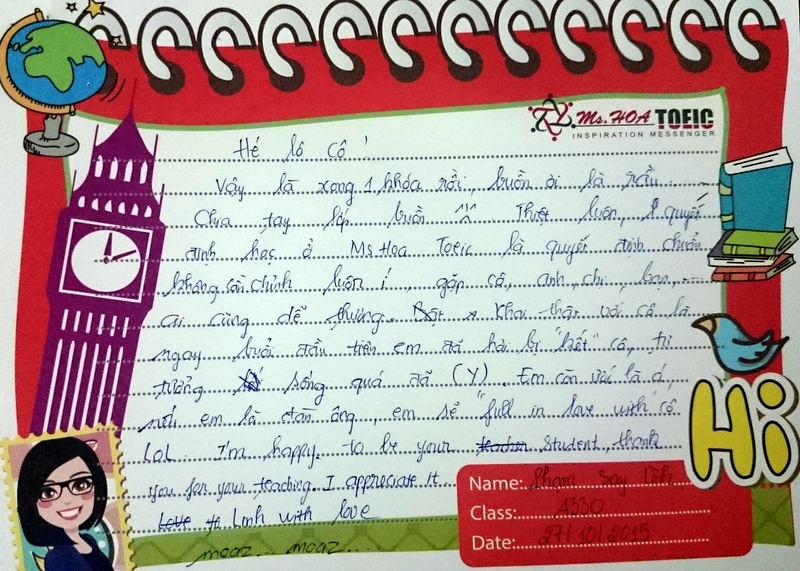 Ms.HOA TOEIC
INSPIRATION MESSENGER
Hé lô cô !
Vậy là xong 1 khóa rồi, buồn ơi là rầu...
Chia tay lớp buồn ^^. Thiệt luôn, quyết
định học ở Ms Hoa Toeic là quyết định chuẩn
không cần chỉnh luôn í, gặp cô, anh, chị, bạn,
ai cũng dễ thương. Bật khai thật với cô là
ngay buổi đầu tiên em đã hơi bị "kết" cô, tư
tưởng sống quá đã (Y). Em còn ước là á,
nếu em là đàn ông, em sẽ "full in love with" cô
LoL. I'm happy to be your teacher student, thank
you for your teaching. I appreciate it
Love to Linh with love
moaz... moaz...
Hi
Name: Phạm Say Linh
Class: A330
Date: 27/10/2015